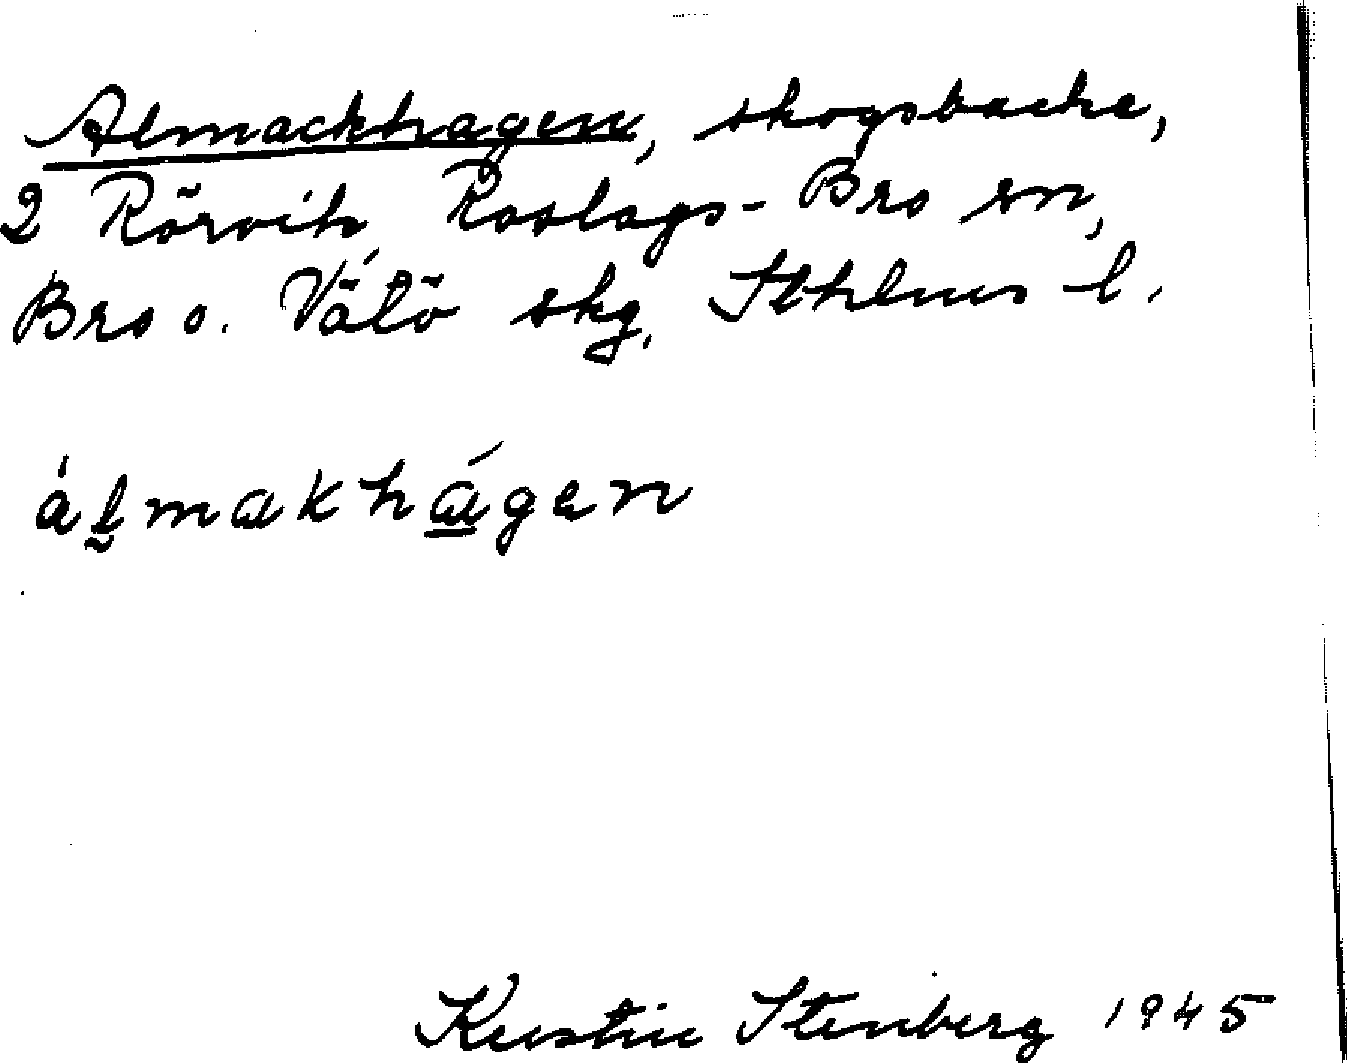 Almackhagen, skogsbacke,
2 Rörvik, Roslags-Bro sn,
Bro o. Vätö skg, Sthlms l.
álmakhágen
Kerstin Stenberg 1945